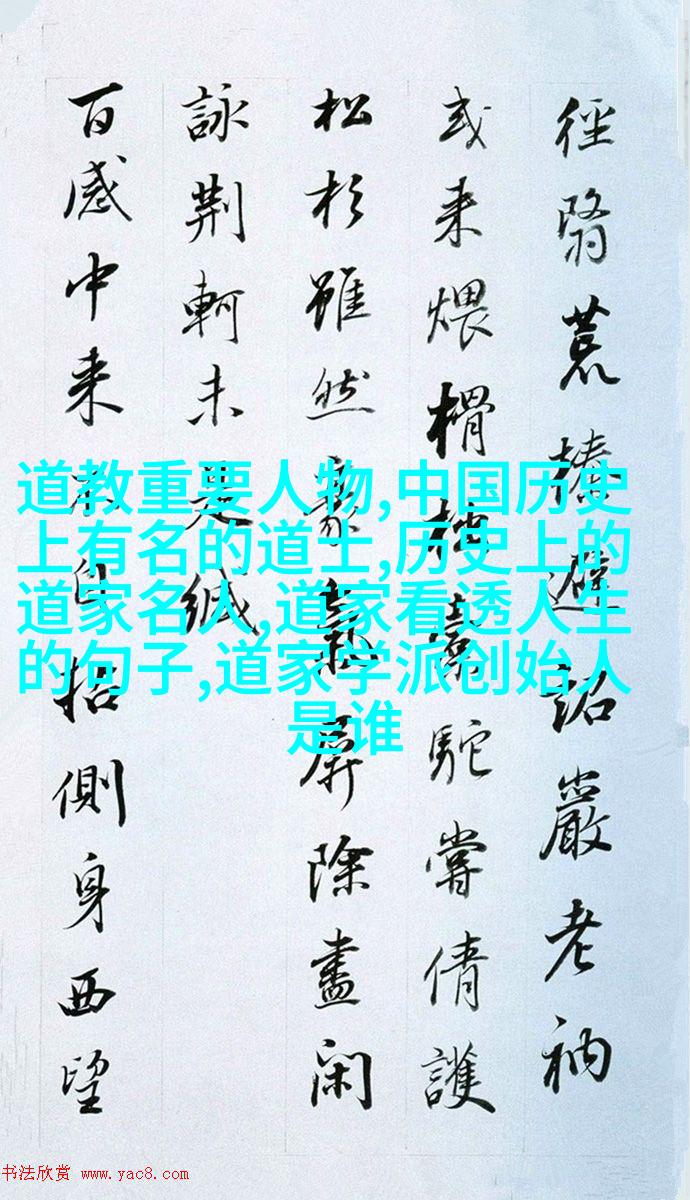 徑翳荒榛避詔嚴老衲
或来煨榾柮橐駝嘗倩護
松杉雖然豪氣屏除盡閑
詠荆軻未是緘
百感中来不自側身西望
道教重要人物,中国历史
上有名的道士,历史上的
道家名人,道家看透人生
的句子,道家学派创始人
是谁
书法欣赏 www.yac8.com